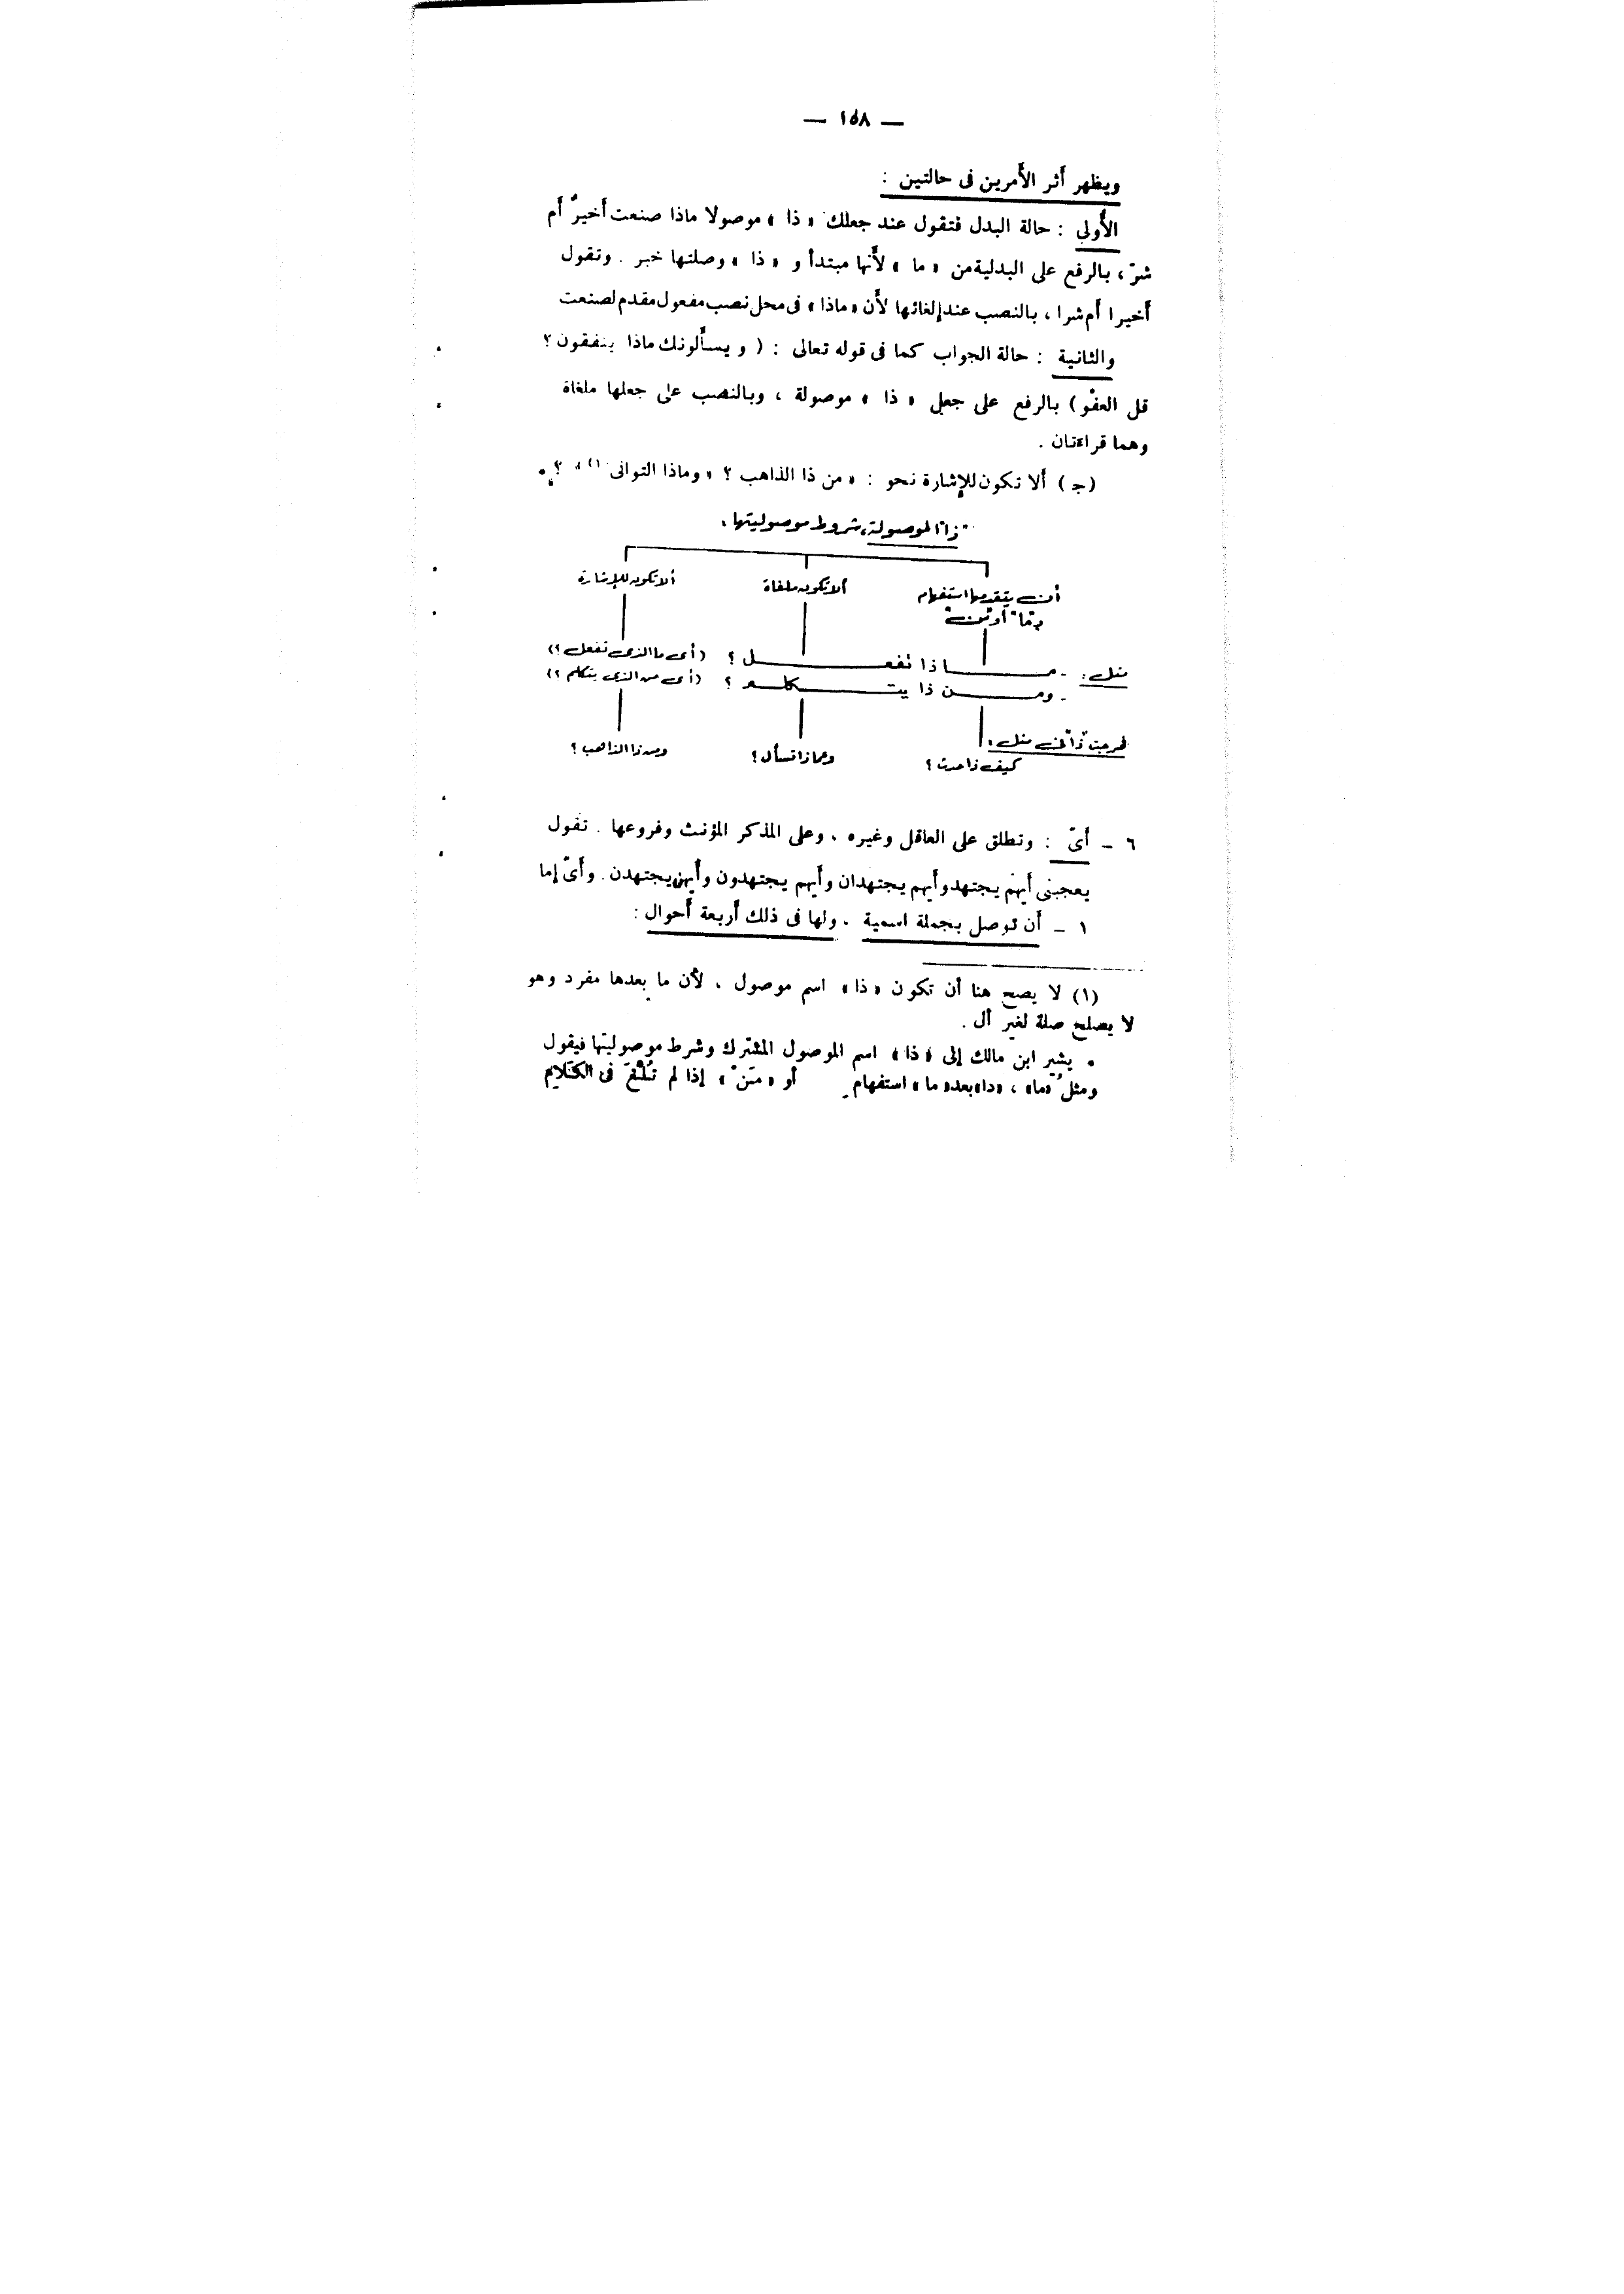 — ١٥٨ —
ويظهر أثر الأمرين فى حالتين :
الأولى : حالة البدل فتقول عند جعلك « ذا » موصولا ماذا صنعت أخيرٌ أم
شرّ ، بالرفع على البدلية من « ما » لأنها مبتدأ و « ذا » وصلتها خبر . وتقول
أخيرا أم شرا ، بالنصب عند إلغائها لأن « ماذا » فى محل نصب مفعول مقدم لصنعت
والثانية : حالة الجواب كما فى قوله تعالى : ( ويسألونك ماذا ينفقون ؟
قل العفو ) بالرفع على جعل « ذا » موصولة ، وبالنصب على جعلها ملغاة
وهما قراءتان .
(جـ) ألا تكون للإشارة نحو : « من ذا الذاهب ؟ » وماذا التوانى (١) » ؟
"ذا" الموصولة، شروط موصوليتها .
أن يتقدمها استفهام ألا تكون ملغاة ألا تكون للإشارة
بـ"ما" أو "من"
مثل : - مــاذا تفعــل ؟ (أى ما الذى تفعل ؟)
- ومــن ذا يتــكلــم ؟ (أى من الذى يتكلم ؟)
فخرجت "ذا" فى مثل :
كيف ذا حدث ؟ وعماذا تسأل ؟ ومن ذا الذاهب ؟
٦ - أىّ : وتطلق على العاقل وغيره ، وعلى المذكر المؤنث وفروعها . تقول
يعجبنى أيهم يجتهد وأيهم يجتهدان وأيهم يجتهدون وأيهن يجتهدن . وأىّ إما
١ - أن توصل بجملة اسمية . ولها فى ذلك أربعة أحوال :
(١) لا يصح هنا أن تكون « ذا » اسم موصول ، لأن ما بعدها مفرد وهو
لا يصلح صلة لغير أل .
• يشير ابن مالك إلى « ذا » اسم الموصول المشترك وشرط موصوليتها فيقول
ومثلُ «ما» ، «ذا» بعد «ما» استفهام أو «مَنْ» إذا لم تُلْغَ فى الكَلامِ